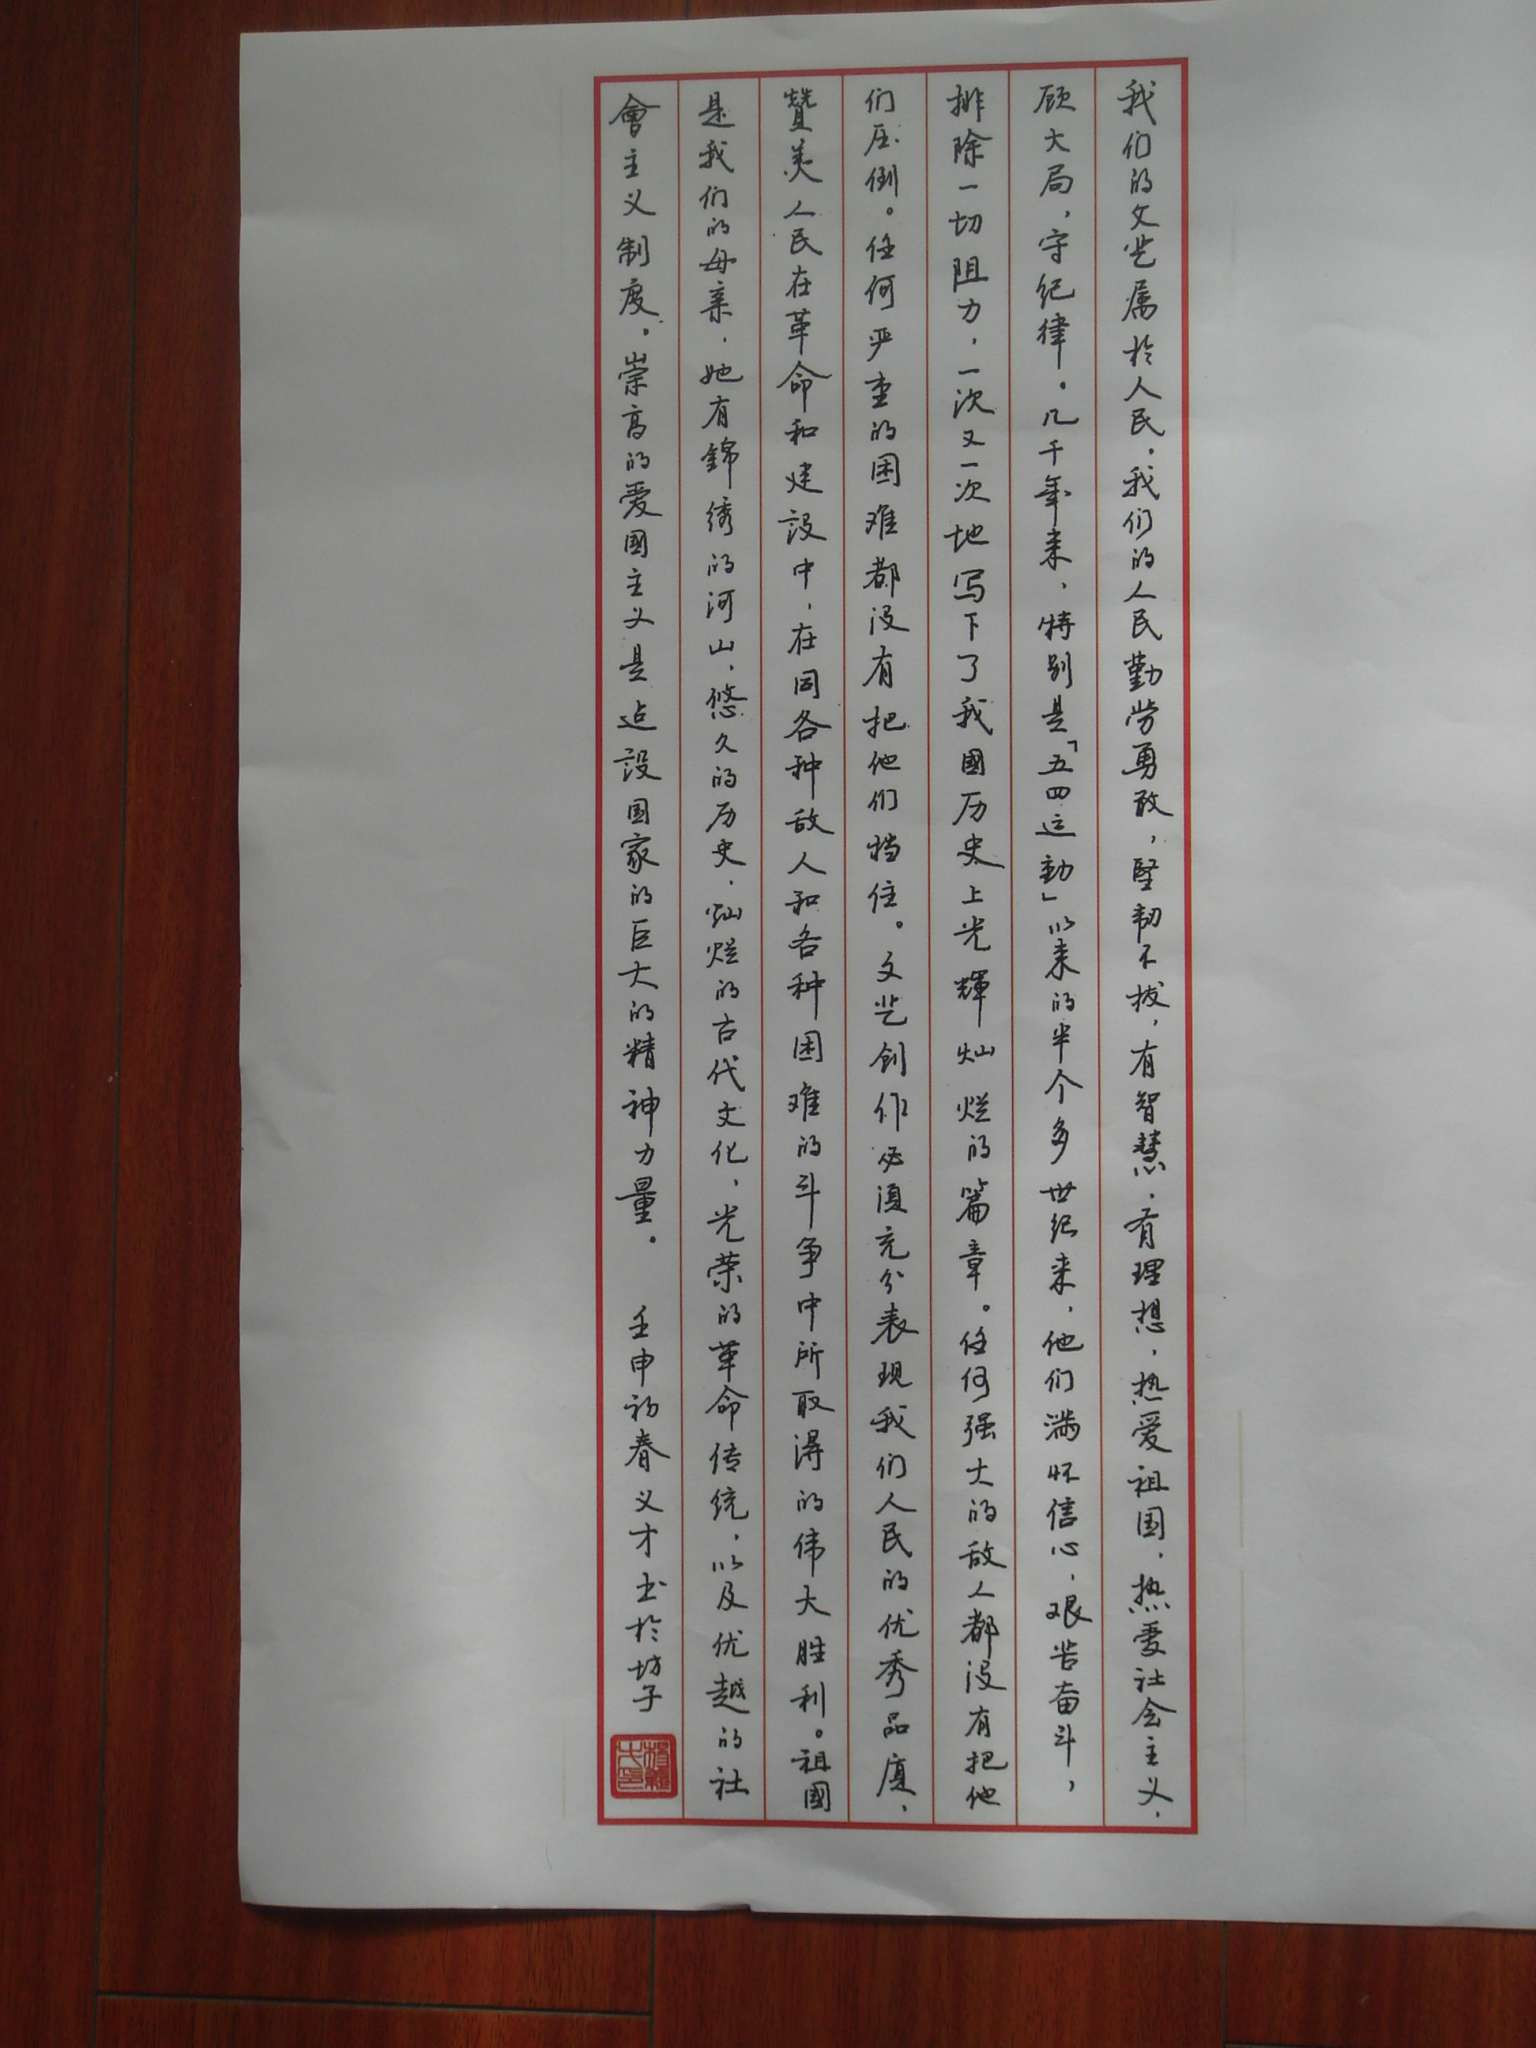 我们的文艺属於人民。我们的人民勤劳勇敢，坚韧不拔，有智慧，有理想，热爱祖国，热爱社会主义，
顾大局，守纪律。几千年来，特别是「五四运动」以来的半个多世纪来，他们满怀信心，艰苦奋斗，
排除一切阻力，一次又一次地写下了我國历史上光輝灿烂的篇章。任何强大的敌人都没有把他
们压倒。任何严重的困难都没有把他们挡住。文艺创作必须充分表现我们人民的优秀品质，
贊美人民在革命和建設中，在同各种敌人和各种困难的斗争中所取得的伟大胜利。祖國
是我们的母亲，她有錦绣的河山，悠久的历史，灿烂的古代文化，光荣的革命传统，以及优越的社
會主义制度。崇高的爱國主义是建設国家的巨大的精神力量。 壬申初春义才书於坊子